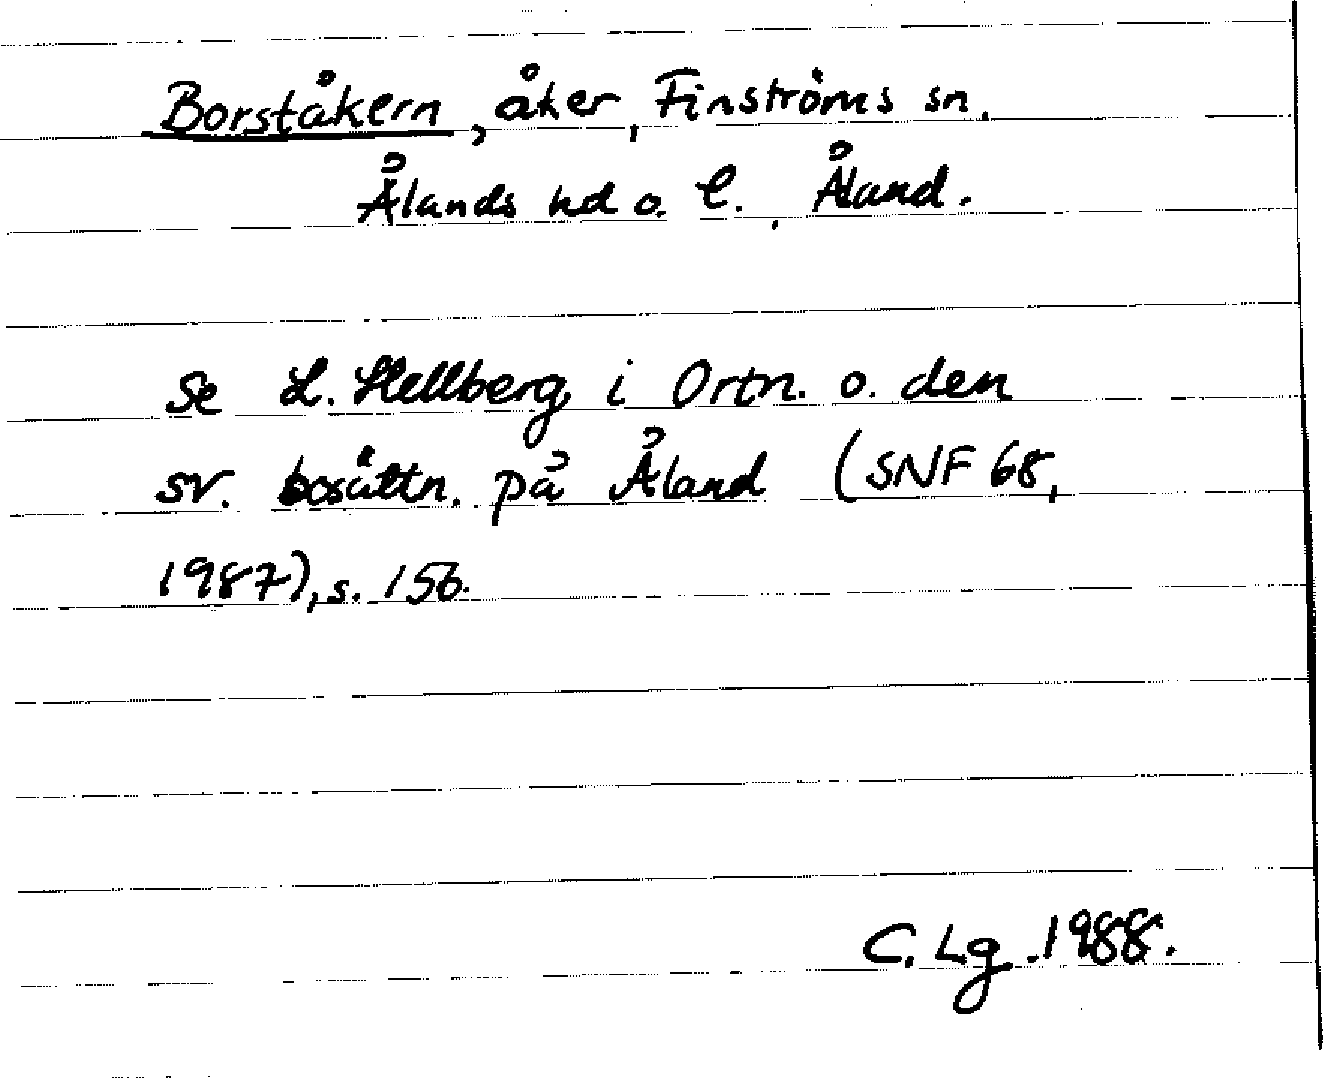 Borståkern, åker, Finströms sn,
Ålands hd o. l., Åland.
Se L. Hellberg i Ortn. o. den
sv. bosättn. på Åland (SNF 68,
1987), s. 156.
C. Lg. 1988.